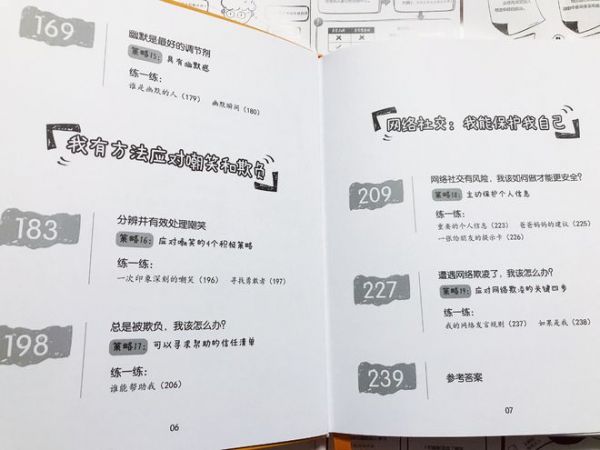 169
幽默是最好的调节剂
策略15：具有幽默感
练一练：
谁是幽默的人（179） 幽默瞬间（180）
我有方法应对嘲笑和欺负
183
分辨并有效处理嘲笑
策略16：应对嘲笑的4个积极策略
练一练：
一次印象深刻的嘲笑（196） 寻找勇敢者（197）
198
总是被欺负，我该怎么办？
策略17：可以寻求帮助的信任清单
练一练：
谁能帮助我（206）
06
网络社交：我能保护我自己
209
网络社交有风险，我该如何做才能更安全？
策略18：主动保护个人信息
练一练：
重要的个人信息（223） 爸爸妈妈的建议（225）
一张给朋友的提示卡（226）
227
遭遇网络欺凌了，我该怎么办？
策略19：应对网络欺凌的关键四步
练一练：
我的网络发言规则（237） 如果是我（238）
239
参考答案
07